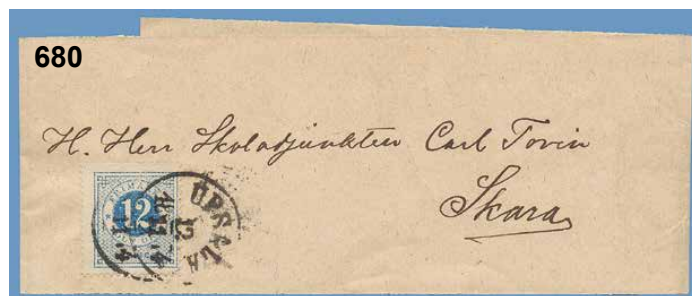 680
H. Herr Skoladjunkten Carl Torin
Skara
FRIMÄRKE
12
UPSALA